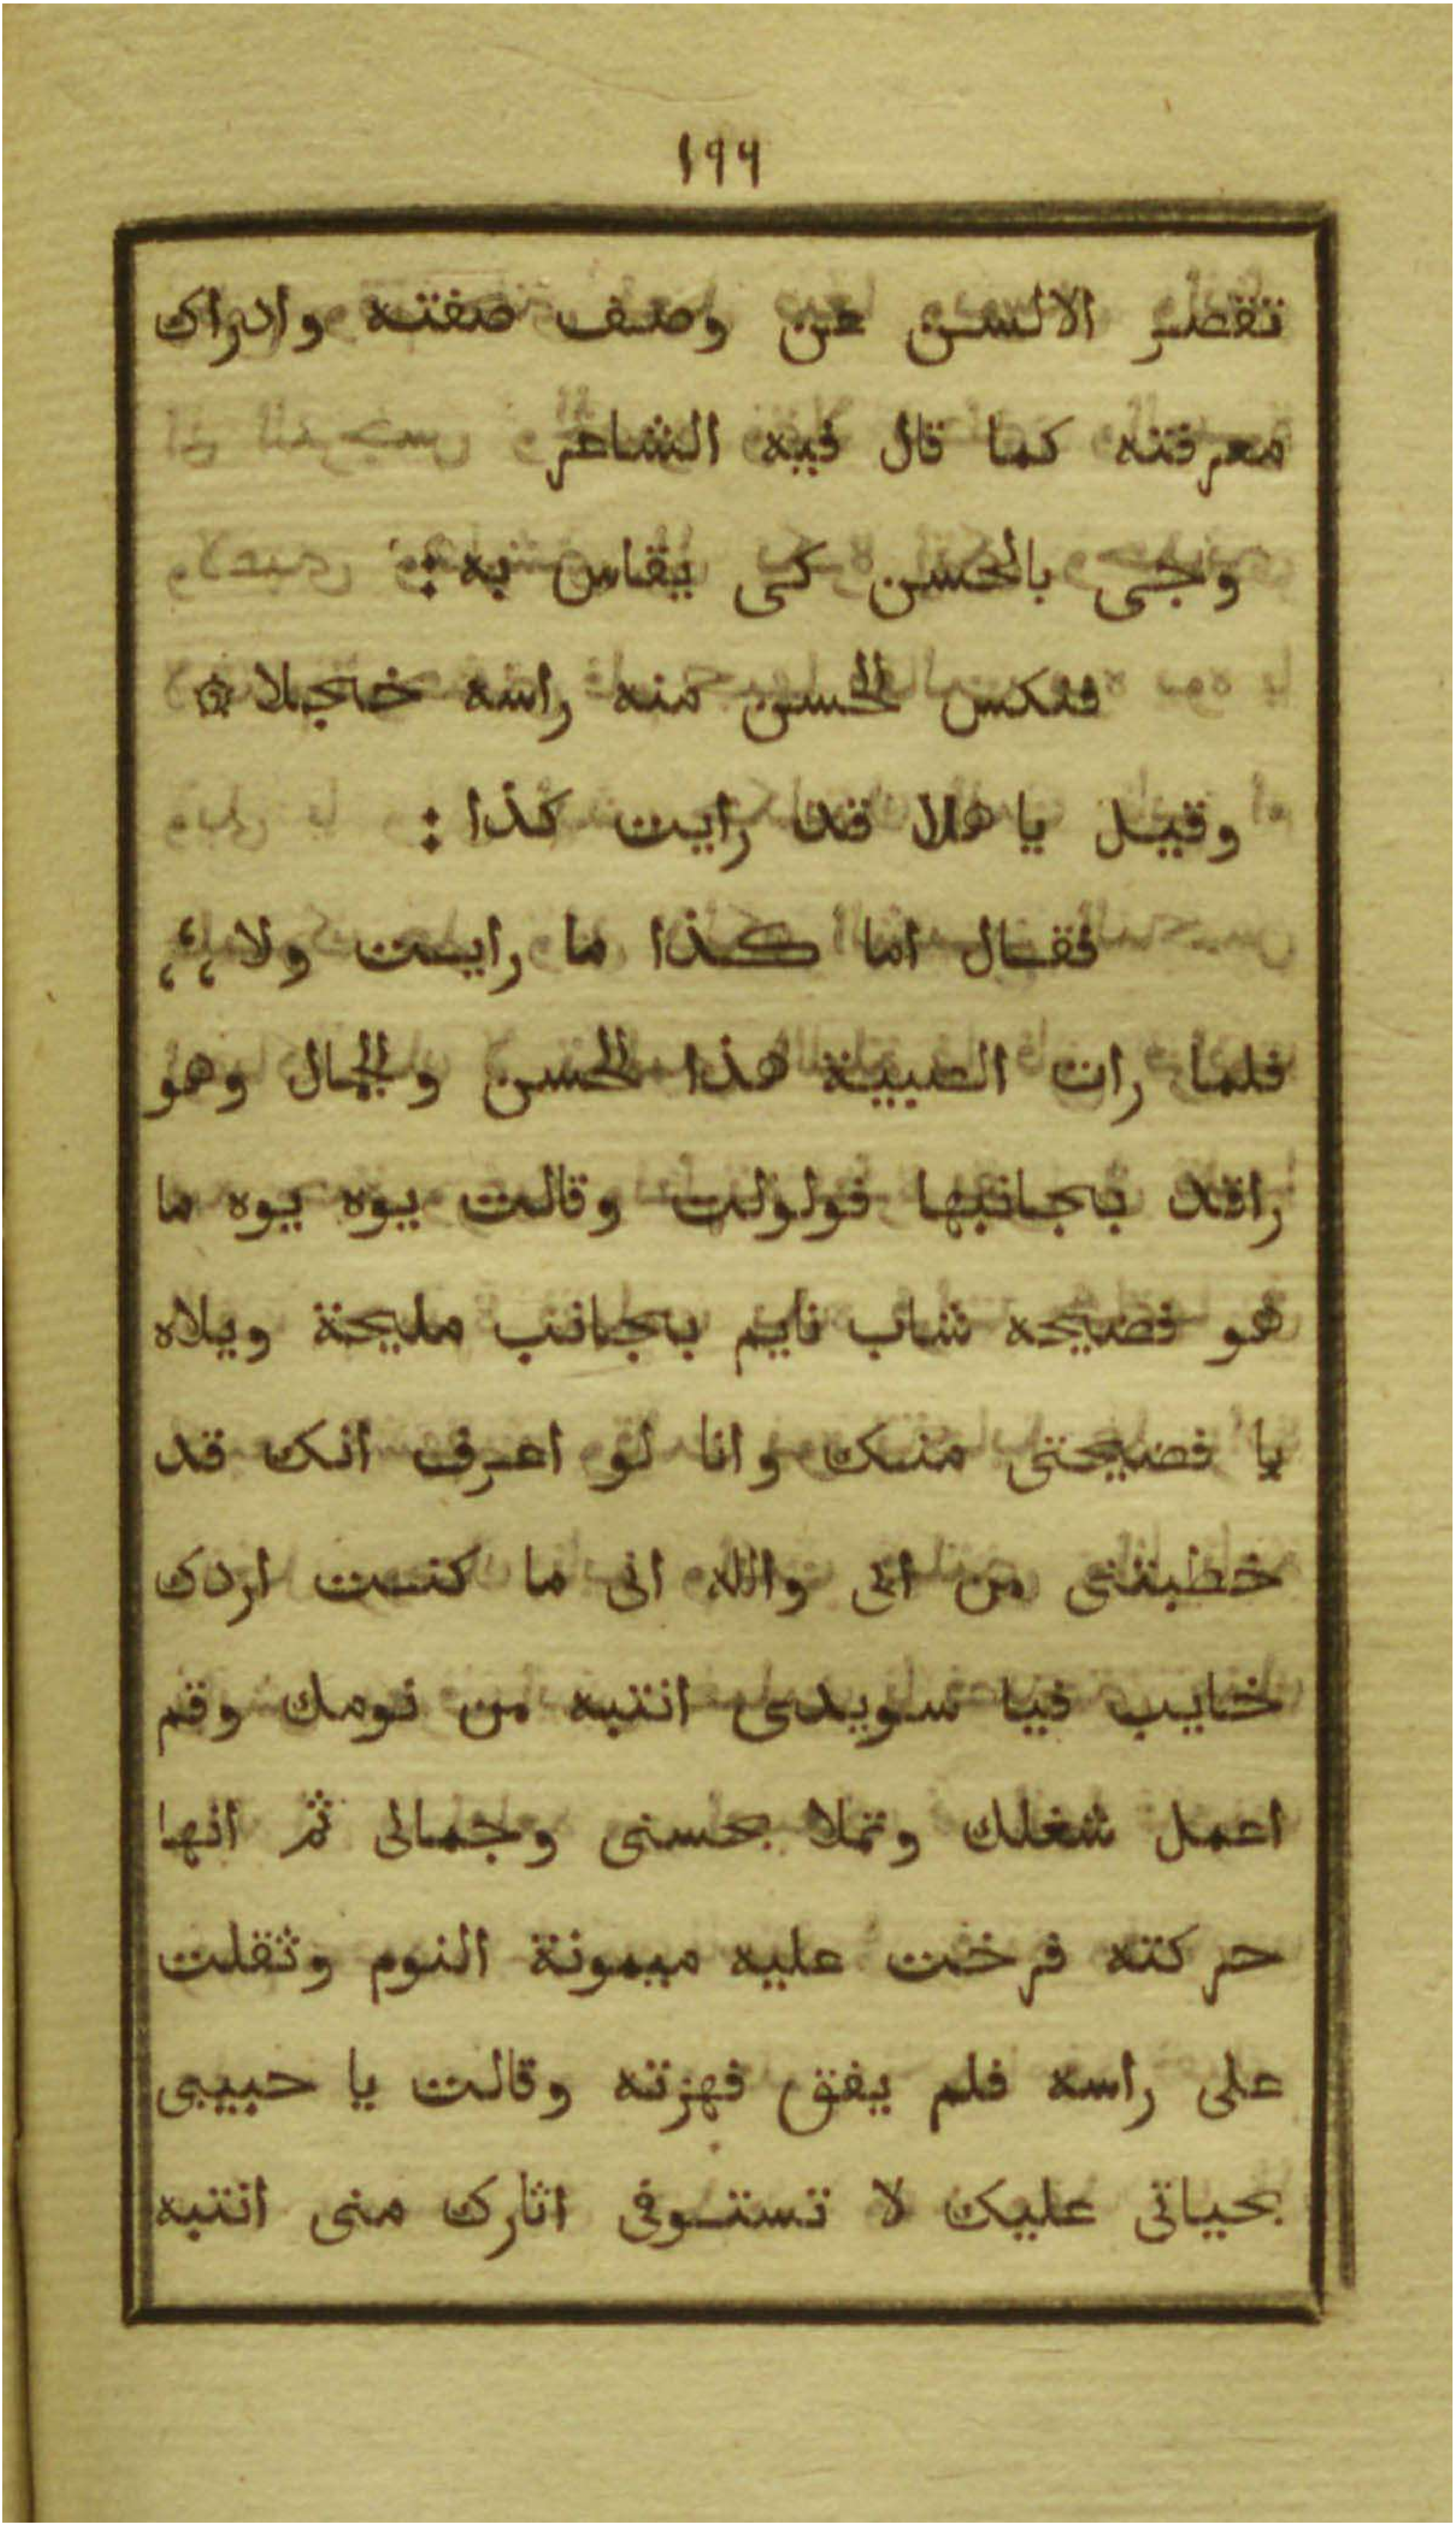 ١٩٩
تقصر الالسن عن وصف صفته وادراك
معرفته كما قال فيه الشاعر
وجى بالحسن كى يقاس به :
فنكس الحسن منه راسه خجلا ۞
وقيل يا هلا قد رايت كذا :
فقال اما كذا ما رايت ولا ،،
فلما رات الصبية هذا الحسن والجمال وهو
راقد بجانبها فولولت وقالت يوه يوه ما
هو فضيحه شاب نايم بجانب مليحة ويلاه
يا فضيحتى منك وانا لو اعرف انك قد
خطبتنى من ابى والله انى ما كنت اردك
خايب فيا سويدى انتبه من نومك وقم
اعمل شغلك وتملا بحسنى وجمالى ثم انها
حركته فرخت عليه ميمونة النوم وثقلت
على راسه فلم يفق فهزته وقالت يا حبيبى
بحياتى عليك لا تستوفى اثارك منى انتبه